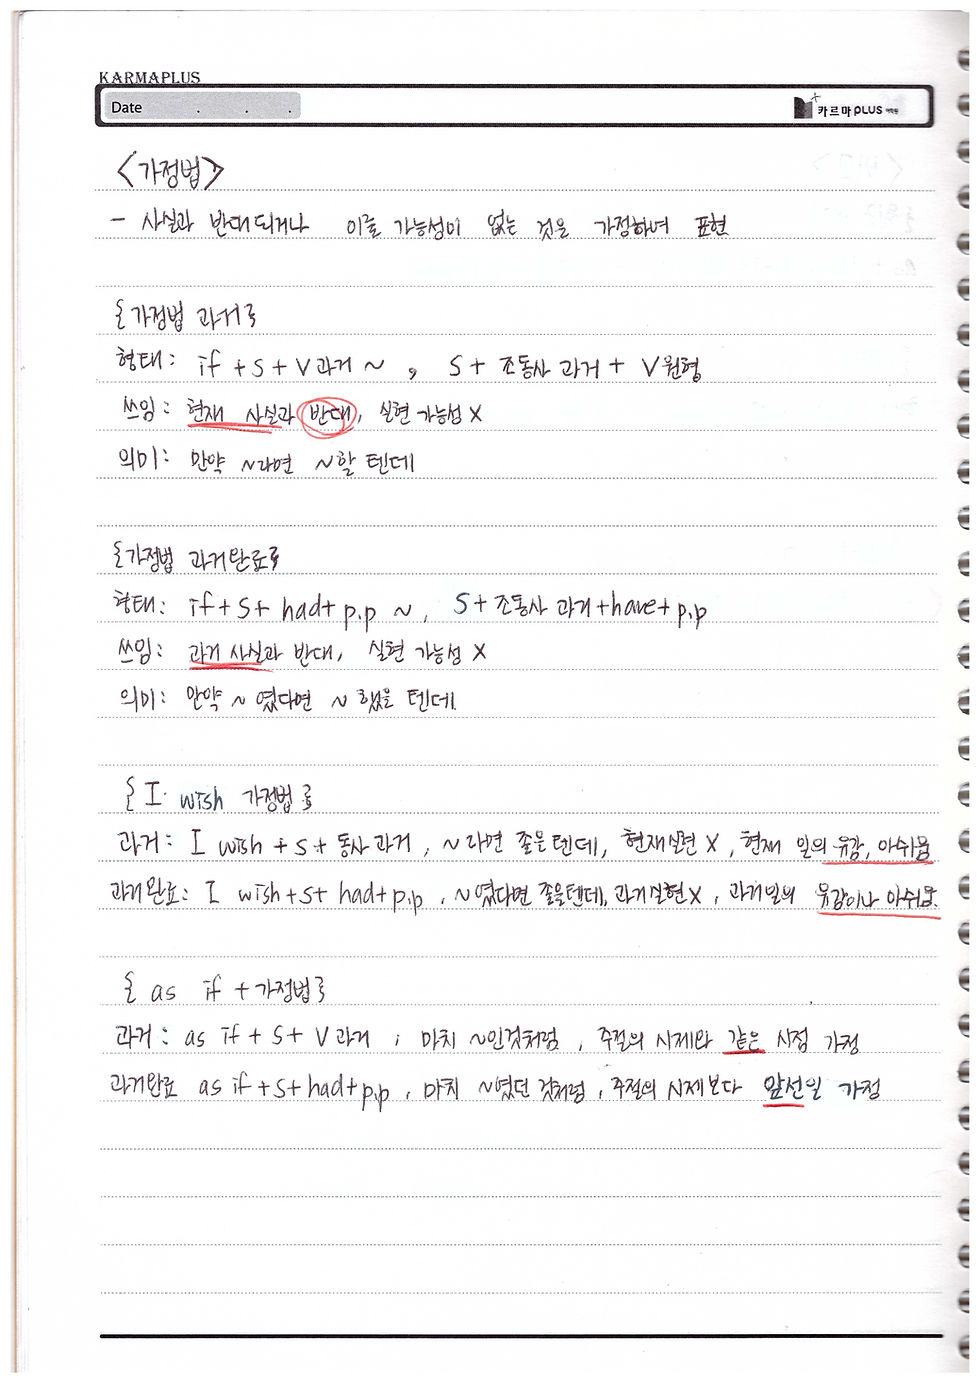 KARMAPLUS
Date . . .
카르마PLUS
<가정법>
- 사실과 반대되거나 이룰 가능성이 없는 것을 가정하여 표현
{가정법 과거}
형태: if + S + V과거 ~ , S + 조동사 과거 + V원형
쓰임: 현재 사실과 반대, 실현 가능성 X
의미: 만약 ~라면 ~할 텐데
{가정법 과거완료}
형태: if + S + had + p.p ~ , S + 조동사 과거 + have + p.p
쓰임: 과거 사실과 반대, 실현 가능성 X
의미: 만약 ~ 였다면 ~ 했을 텐데.
{I wish 가정법}
과거: I wish + S + 동사과거 , ~라면 좋을텐데, 현재실현 X , 현재 일의 유감, 아쉬움
과거완료: I wish + S + had + p.p , ~였다면 좋을텐데, 과거실현X , 과거일의 유감이나 아쉬움.
{as if + 가정법}
과거: as if + S + V과거 ; 마치 ~인것처럼 , 주절의 시제와 같은 시점 가정
과거완료 as if + S + had + p.p , 마치 ~였던 것처럼 , 주절의 시제보다 앞선일 가정